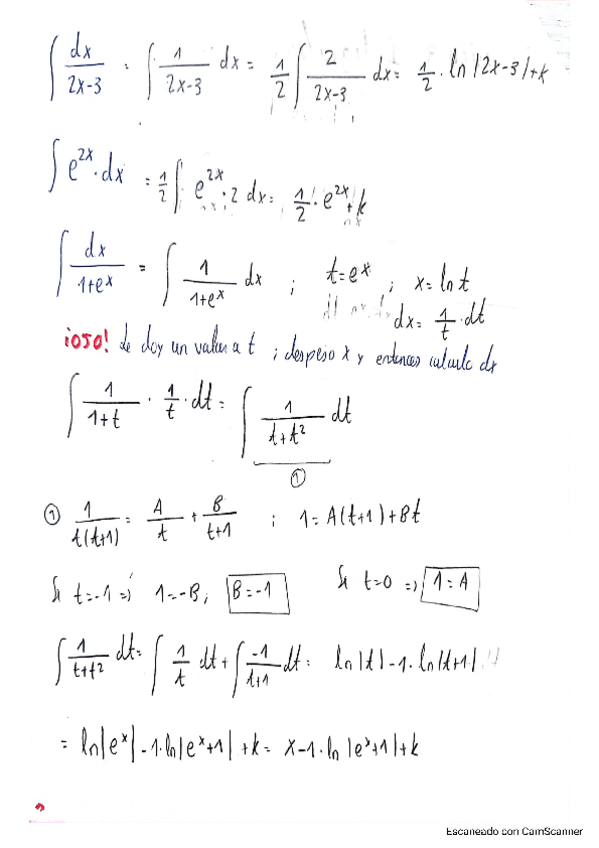 ∫ dx/(2x-3) = ∫ 1/(2x-3) dx = 1/2 ∫ 2/(2x-3) dx = 1/2 · ln|2x-3|+k
∫ e^(2x) · dx = 1/2 ∫ e^(2x) · 2 dx = 1/2 · e^(2x) + k
∫ dx/(1+e^x) = ∫ 1/(1+e^x) dx ; t=e^x ; x=ln t
dx = 1/t · dt
¡OJO! Le doy un valor a t ; despejo x y entonces calculo dx
∫ 1/(1+t) · 1/t · dt = ∫ 1/(t+t²) dt
①
① 1/(t(t+1)) = A/t + B/(t+1) ; 1=A(t+1)+Bt
Si t=-1 => 1=-B; B=-1 Si t=0 => 1=A
∫ 1/(t+t²) dt = ∫ 1/t dt + ∫ -1/(t+1) dt = ln|t|-1·ln|t+1|
= ln|e^x|-1·ln|e^x+1|+k = x-1·ln|e^x+1|+k
Escaneado con CamScanner